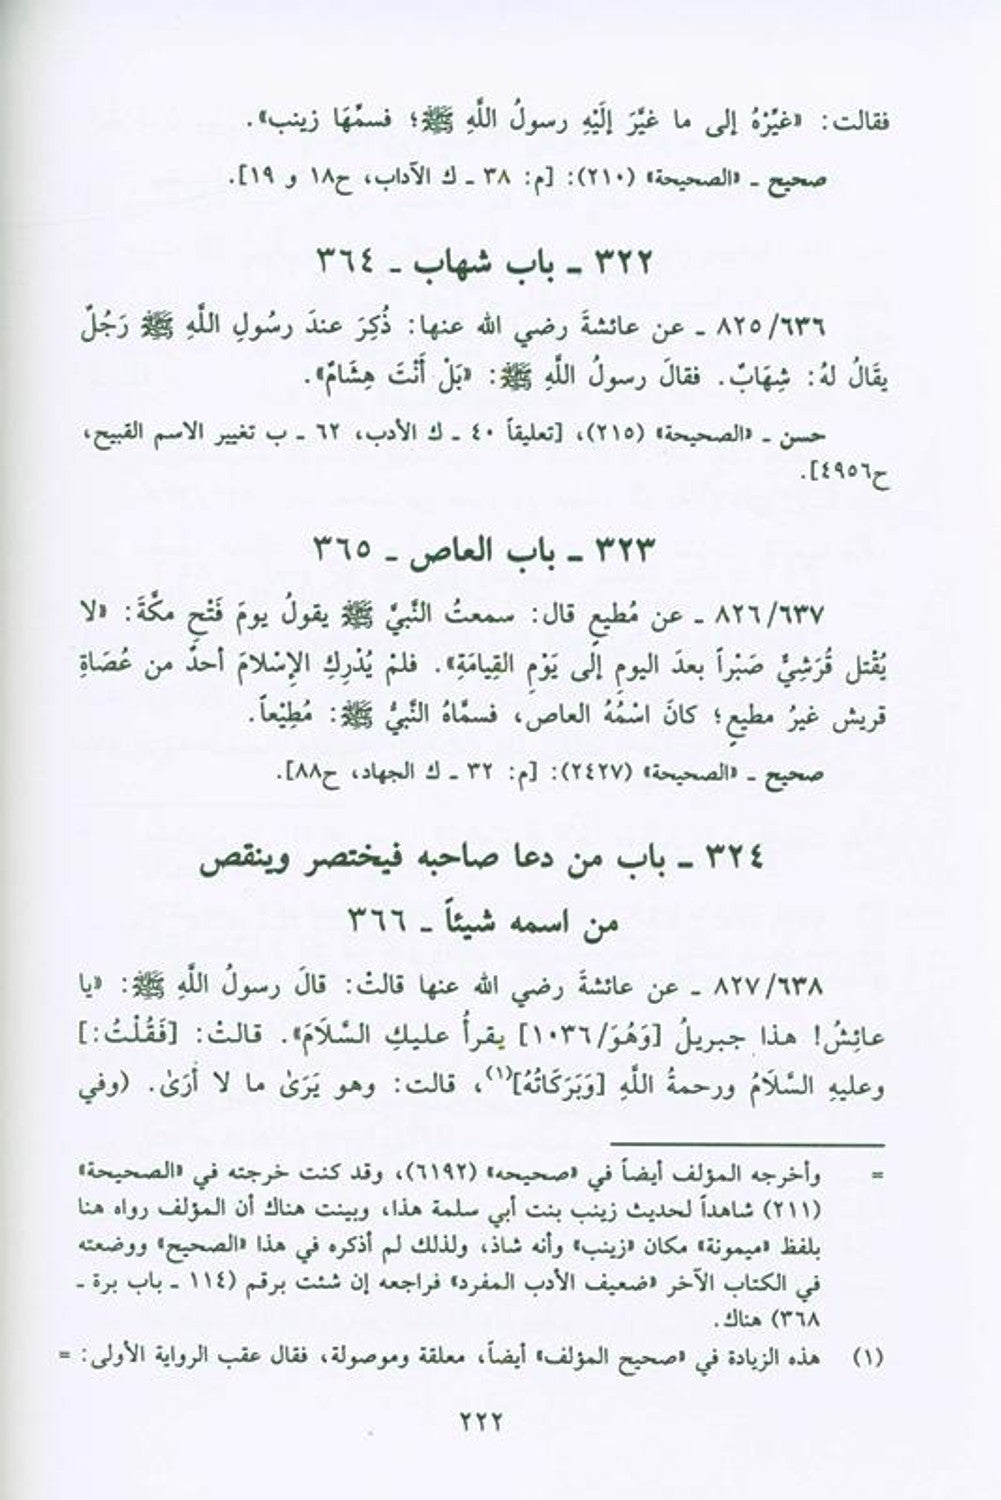 فقالت: «غيِّرْهُ إلى ما غيَّرَ إلَيْهِ رسولُ اللَّهِ ﷺ؛ فسمِّهَا زينب».
صحيح ـ «الصحيحة» (٢١٠): [م: ٣٨ ـ ك الآداب، ح١٨ و ١٩].
٣٢٢ ـ باب شهاب ـ ٣٦٤
٨٢٥/٦٣٦ ـ عن عائشةَ رضي الله عنها: ذُكِرَ عندَ رسُولِ اللَّهِ ﷺ رَجُلٌ
يقَالُ لهُ: شِهَابٌ. فقالَ رسولُ اللَّهِ ﷺ: «بَلْ أَنْتَ هِشَامٌ».
حسن ـ «الصحيحة» (٢١٥)، [تعليقاً ٤٠ ـ ك الأدب، ٦٢ ـ ب تغيير الاسم القبيح،
ح٤٩٥٦].
٣٢٣ ـ باب العاص ـ ٣٦٥
٨٢٦/٦٣٧ ـ عن مُطيعٍ قال: سمعتُ النَّبيَّ ﷺ يقولُ يومَ فَتْحِ مكَّةَ: «لا
يُقْتل قُرَشِيٌّ صَبْراً بعدَ اليومِ إلى يَوْمِ القِيامَةِ». فلمْ يُدْرِكِ الإسْلامَ أحدٌ من عُصَاةِ
قريش غيرُ مطيعٍ؛ كانَ اسْمُهُ العاص، فسمَّاهُ النَّبيُّ ﷺ: مُطِيْعاً.
صحيح ـ «الصحيحة» (٢٤٢٧): [م: ٣٢ ـ ك الجهاد، ح٨٨].
٣٢٤ ـ باب من دعا صاحبه فيختصر وينقص
من اسمه شيئاً ـ ٣٦٦
٨٢٧/٦٣٨ ـ عن عائشةَ رضي الله عنها قالتْ: قالَ رسولُ اللَّهِ ﷺ: «يا
عائِشُ! هذا جبريلُ [وَهُوَ/١٠٣٦] يقرأُ عليكِ السَّلَامَ». قالتْ: [فَقُلْتُ:]
وعليهِ السَّلَامُ ورحمةُ اللَّهِ [وَبَرَكَاتُهُ](١)، قالت: وهو يَرَىٰ ما لا أَرَىٰ. (وفي
= وأخرجه المؤلف أيضاً في «صحيحه» (٦١٩٢)، وقد كنت خرجته في «الصحيحة»
(٢١١) شاهداً لحديث زينب بنت أبي سلمة هذا، وبينت هناك أن المؤلف رواه هنا
بلفظ «ميمونة» مكان «زينب» وأنه شاذ، ولذلك لم أذكره في هذا «الصحيح» ووضعته
في الكتاب الآخر «ضعيف الأدب المفرد» فراجعه إن شئت برقم (١١٤ ـ باب برة ـ
٣٦٨) هناك.
(١) هذه الزيادة في «صحيح المؤلف» أيضاً، معلقة وموصولة، فقال عقب الرواية الأولى: =
٢٢٢